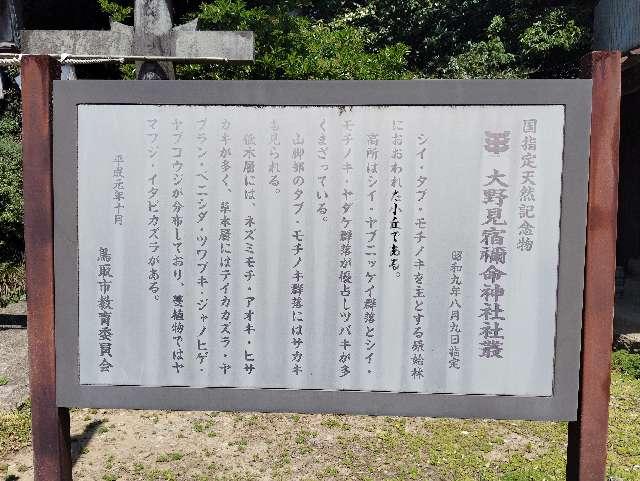 国指定天然記念物
大野見宿禰命神社社叢
昭和九年八月九日指定
シイ・タブ・モチノキを主とする原始林
におおわれた小丘である。
高所はシイ・ヤブニッケイ群落とシイ・
モチノキ・ヤダケ群落が優占しツバキが多
くまざっている。
山脚部のタブ・モチノキ群落にはサカキ
も見られる。
低木層には、ネズミモチ・アオキ・ヒサ
カキが多く、草本層にはテイカカズラ・ヤ
ブラン・ベニシダ・ツワブキ・ジャノヒゲ・
ヤブコウジが分布しており、蔓植物ではヤ
マフジ・イタビカズラがある。
平成元年十月
鳥取市教育委員会